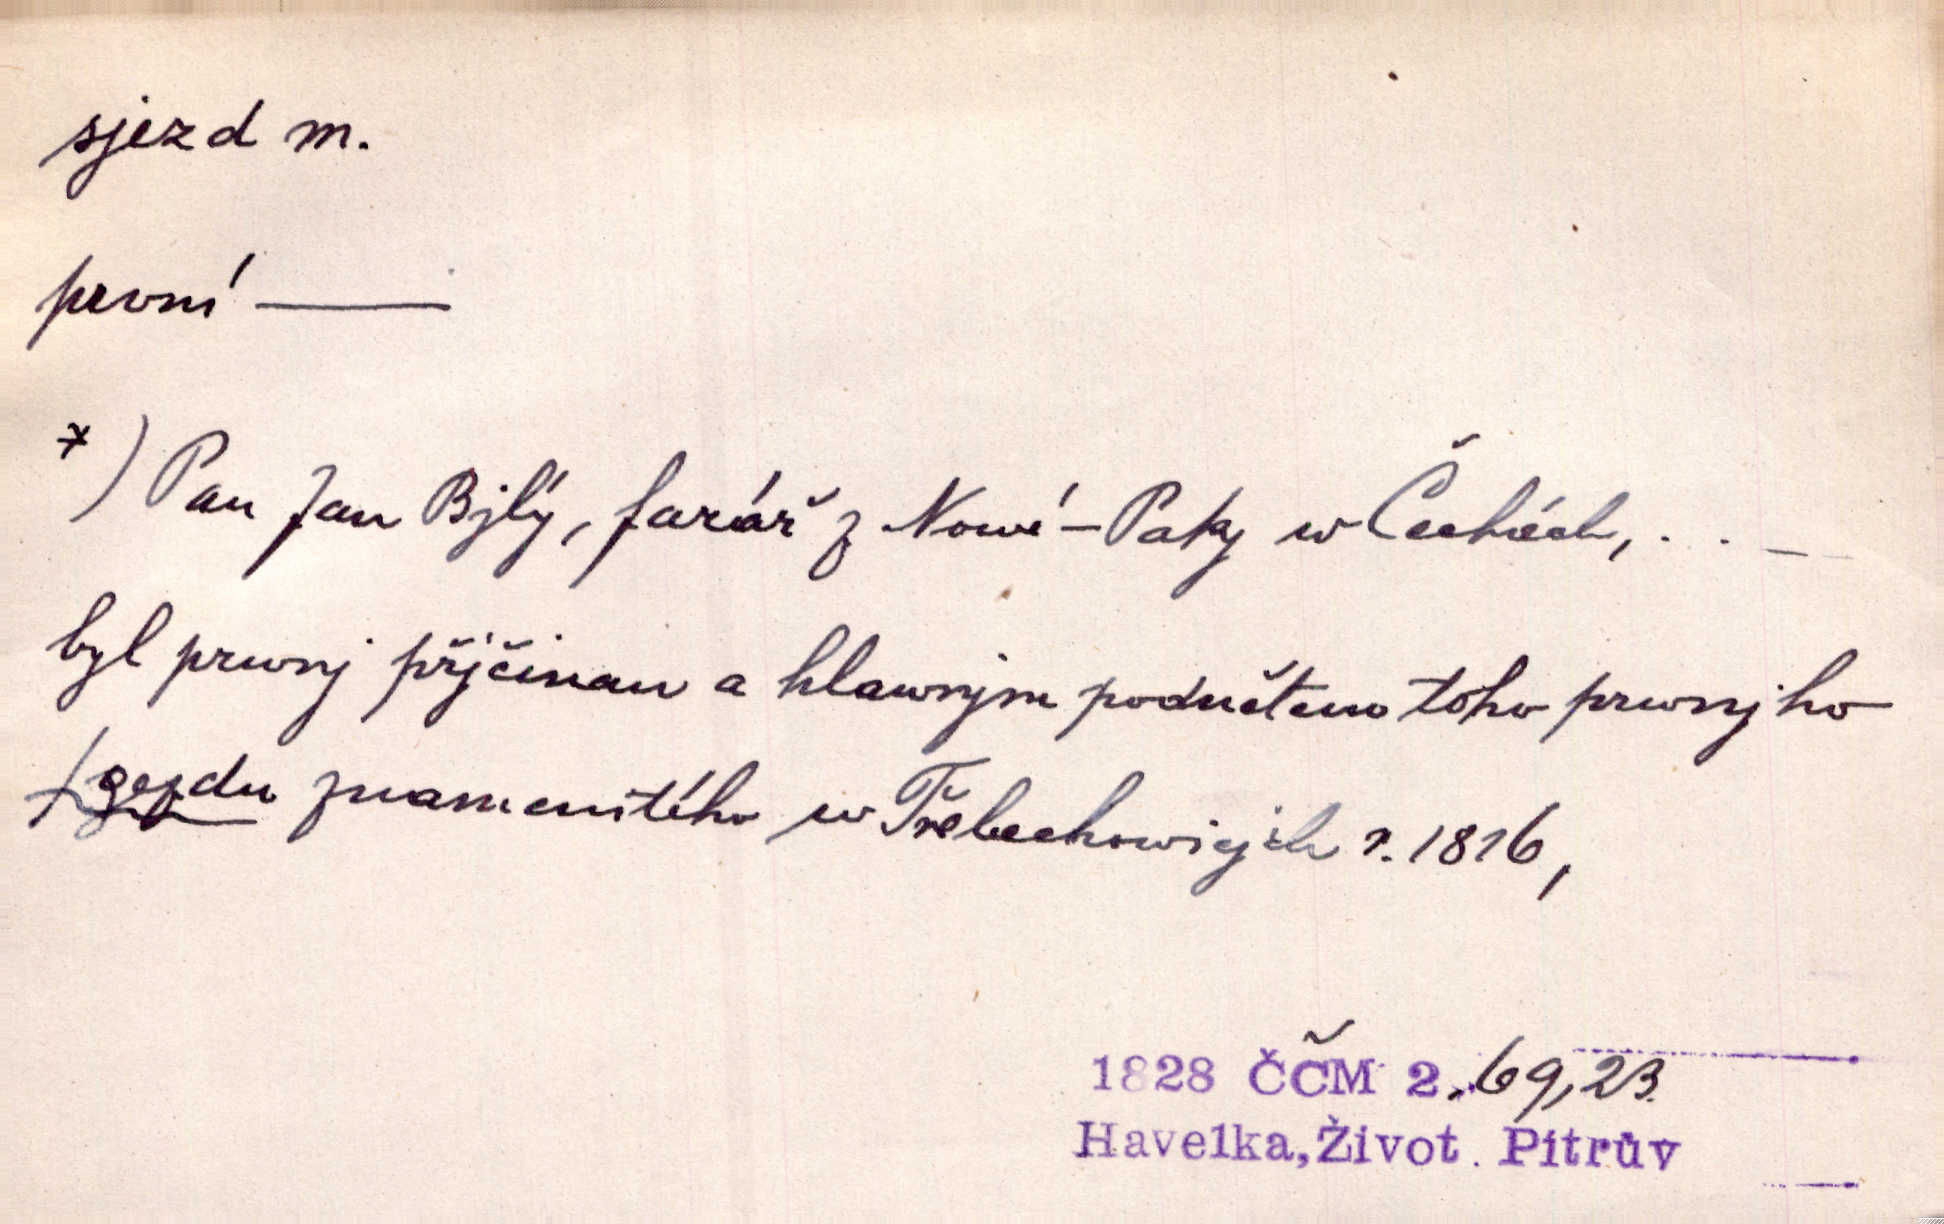 sjezd m.
první ———
*) Pan Jan Bjlý, farář z Nowé-Paky w Čechách, . . —
byl prwnj přjčinau a hlawnjm podnětem toho prwnjho
sgezdu znamenitého w Třebechowicjch r. 1816,
1828 ČČM 2. 69,23.
Havelka, Život Pitrův